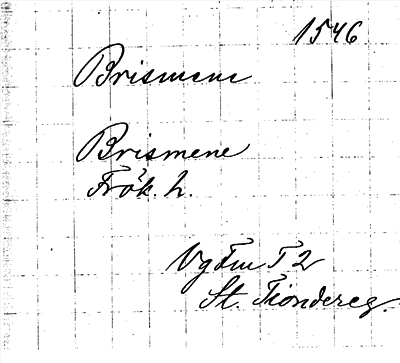 1546
Brismene
Brismene
Frök. h.
Vgtm T 2
St. Tiondereg.